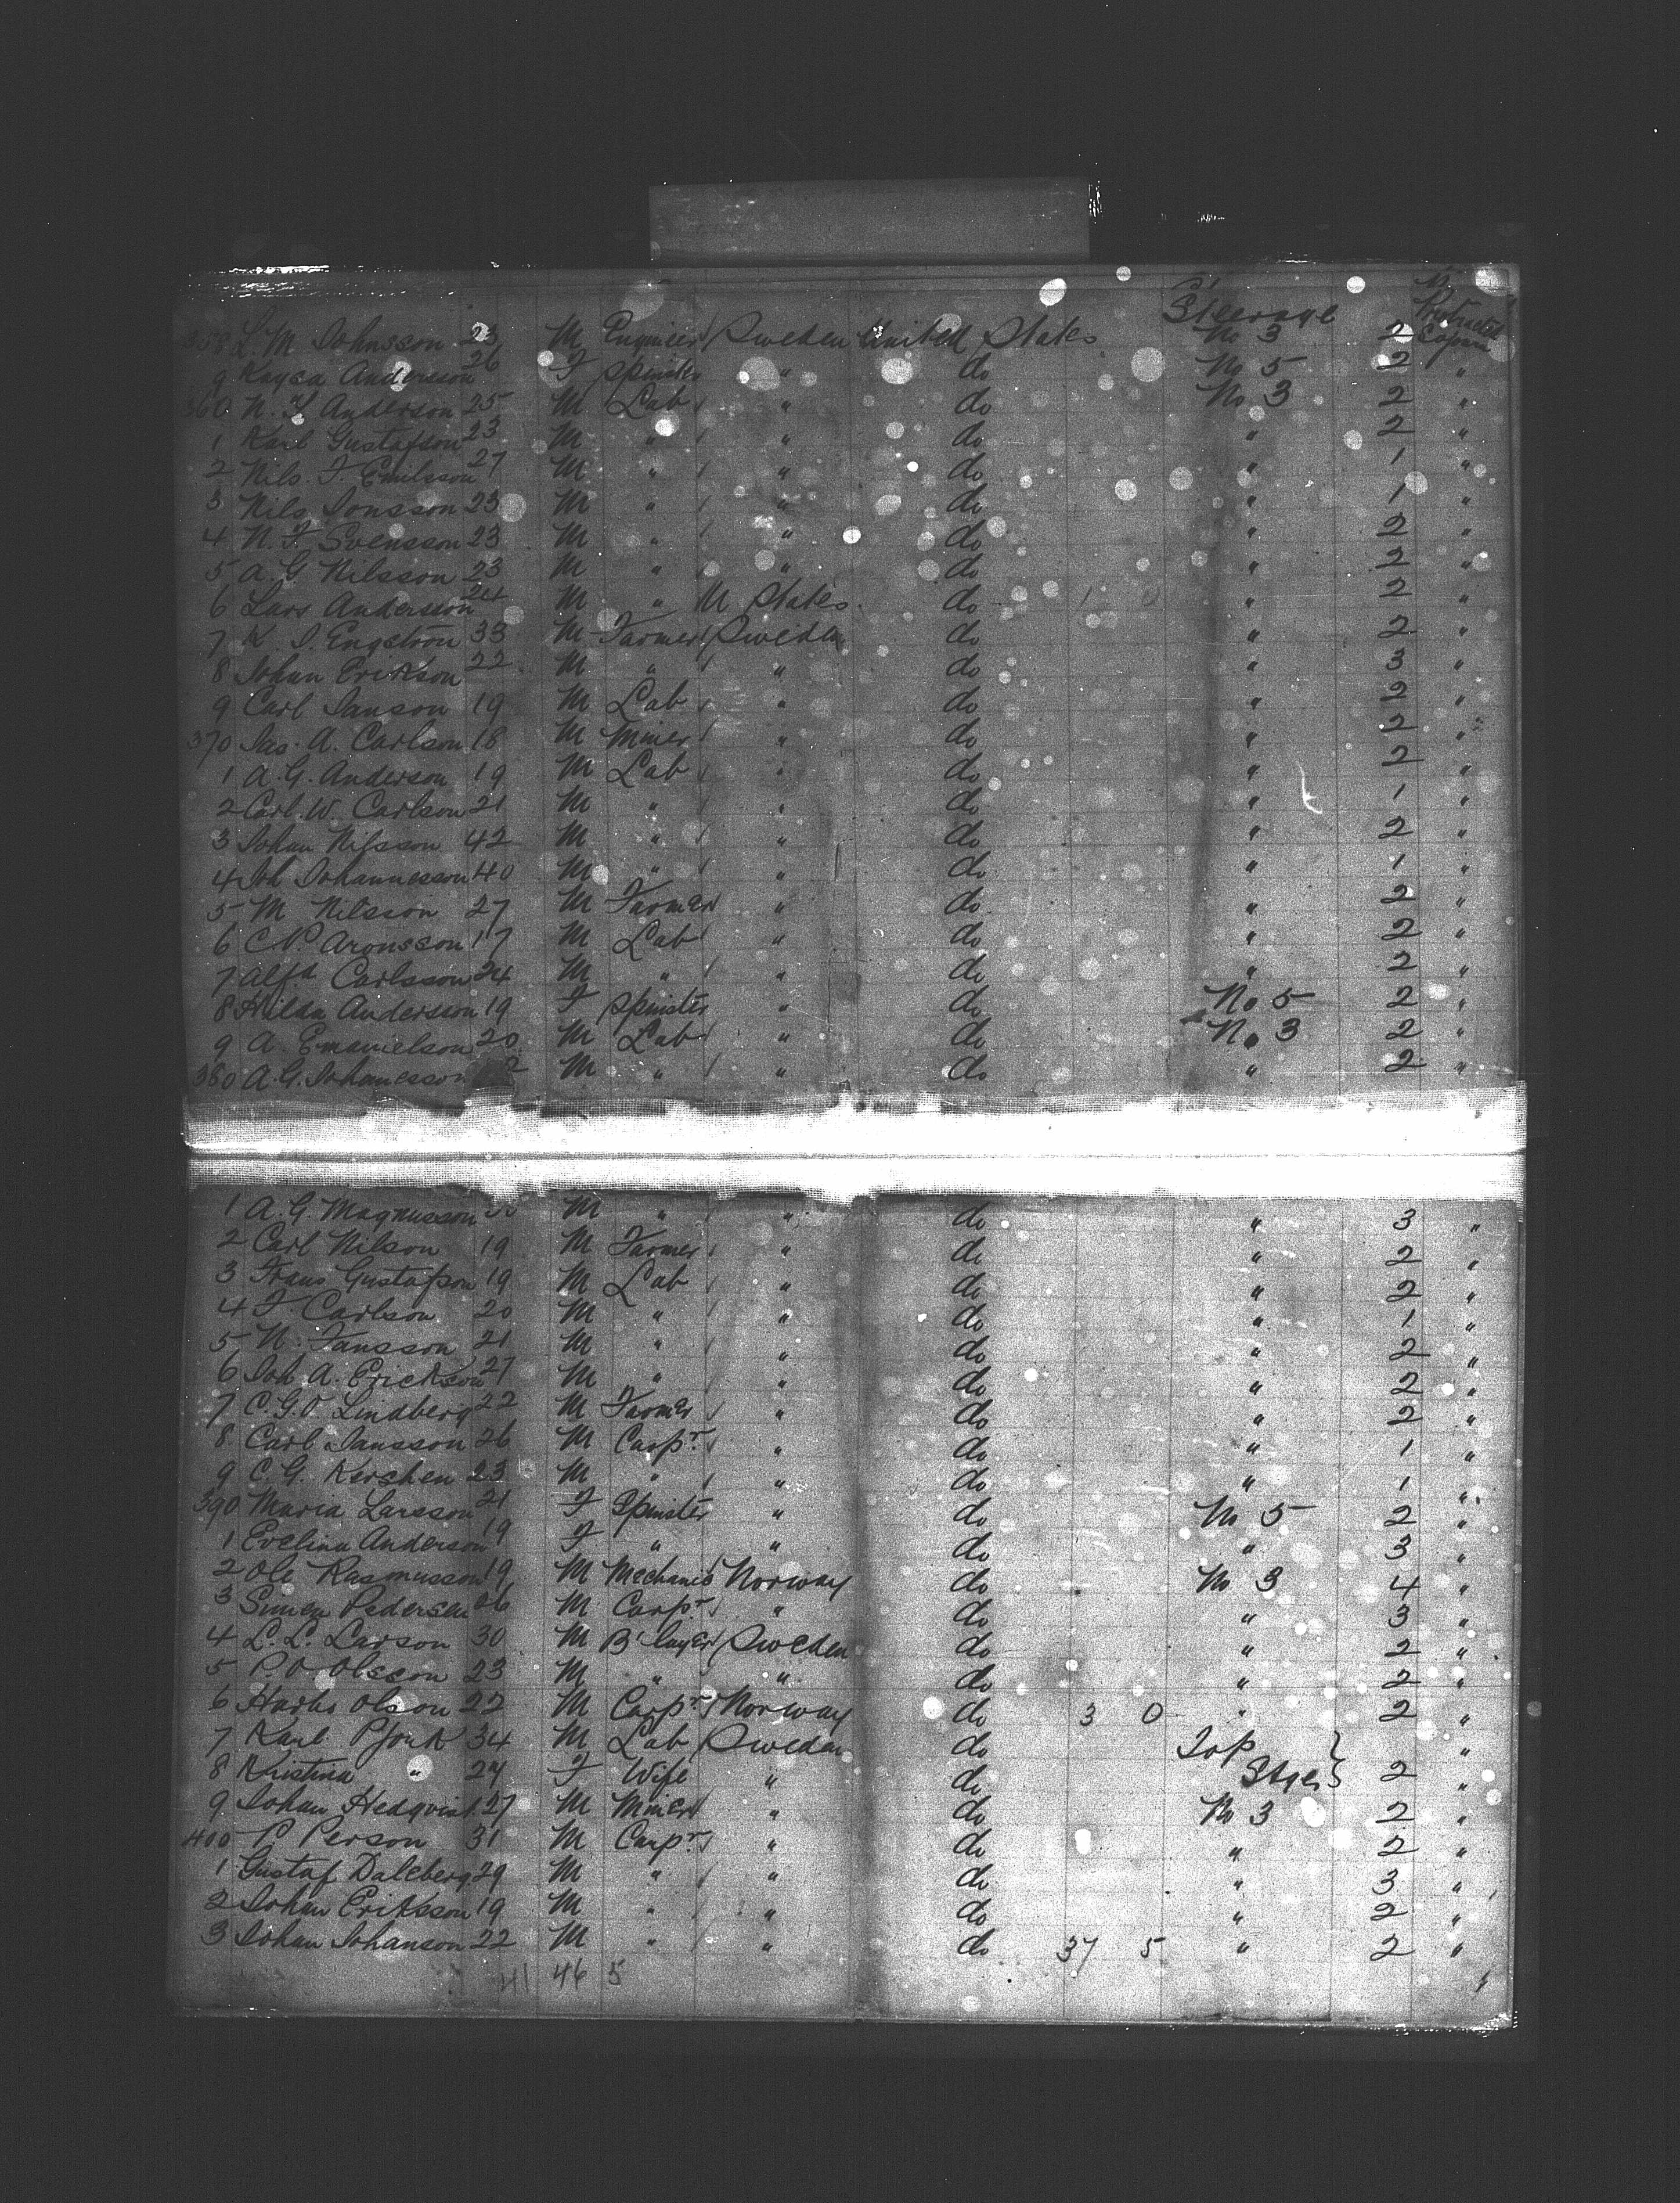 Steerage
358 L. M Johnsson 23 M Engineer Sweden United States No 3 2 Protracted Sojourn
9 Kaysa Andersson 26 F Spinster " do No 5 2 "
360 N. Anderson 25 M Lab " do No 3 2 "
1 Karl Gustafson 23 M " " do " 2 "
2 Nils. F. Emilsson 27 M " " do " 1 "
3 Nils Jonsson 23 M " " do " 1 "
4 N. F Svensson 23 M " " do " 2 "
5 A G Nilsson 23 M " " do " 2 "
6 Lars Andersson 24 M " U States do 1 0 " 2 "
7 K. J. Engstrom 33 M Farmer Sweden do " 2 "
8 Johan Erikson 22 M " " do " 3 "
9 Carl Janson 19 M Lab " do " 2 "
370 Jas. A. Carlson 18 M Miner " do " 2 "
1 A. G. Anderson 19 M Lab " do " 2 "
2 Carl. W. Carlson 21 M " " do " 1 "
3 Johan Nilsson 42 M " " do " 2 "
4 Joh Johannesson 40 M " " do " 1 "
5 M Nilsson 27 M Farmer " do " 2 "
6 C P Aronsson 17 M Lab " do " 2 "
7 Alfd Carlsson 24 M " " do " 2 "
8 Hilda Andersson 19 F Spinster " do No 5 2 "
9 A. Emanielson 20 M Lab " do No 3 2 "
380 A. G. Johanesson 2 M " " do " 2 "
1 A. G. Magnusson M " " do " 3 "
2 Carl Nilson 19 M Farmer " do " 2 "
3 Frans Gustafson 19 M Lab " do " 2 "
4 F Carlson 20 M " " do " 1 "
5 N. Jansson 21 M " " do " 2 "
6 Joh A. Erickson 27 M " " do " 2 "
7 C. G. O. Lindberg 22 M Farmer " do " 2 "
8 Carl Jansson 26 M Carpr " do " 1 "
9 C. G. Kerschen 23 M " " do " 1 "
390 Maria Larsson 21 F Spinster " do No 5 2 "
1 Evelina Anderson 19 F " " do " 3 "
2 Ole Rasmusson 19 M Mechanic Norway do No 3 4 "
3 Simen Pedersen 26 M Carpr " do " 3 "
4 L. L. Larson 30 M B'layer Sweden do " 2 "
5 P. O Olsson 23 M " " do " 2 "
6 Olson 22 M Carpr Norway do 3 0 " 2 "
7 Karl 34 M Lab Sweden do Top "
8 Kristina " 24 F Wife " do Stge 2 "
9 Johan Hedqvist 27 M Miner " do No 3 2 "
400 P Person 31 M Carpr " do " 2 "
1 Gustaf Daleberg 29 M " " do " 3 "
2 Johan Eriksson 19 M " " do " 2 "
3 Johan Johanson 22 M " " do 37 5 " 2 "
41 46 5